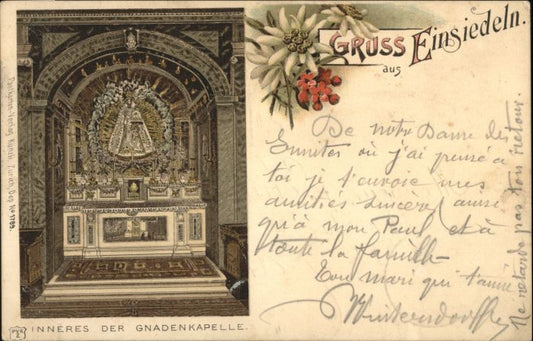 GRUSS
aus
Einsiedeln.
De notre Dame des
Ermites où j'ai pensé à
toi je t'envoie mes
amitiés sincères ainsi
qu'à mon Paul et à
toute la famille
Ton mari qui t'aime
Ne retarde pas ton retour.
INNERES DER GNADENKAPELLE.